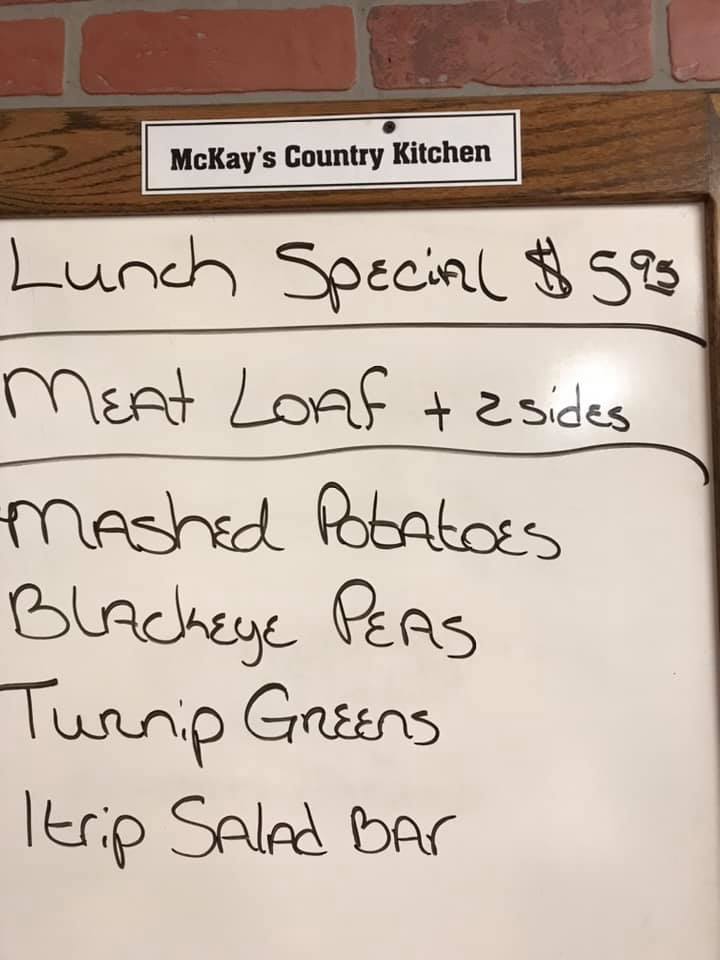 McKay's Country Kitchen
Lunch Special $5.95
Meat Loaf + 2 sides
Mashed Potatoes
Blackeye Peas
Turnip Greens
1 trip Salad Bar